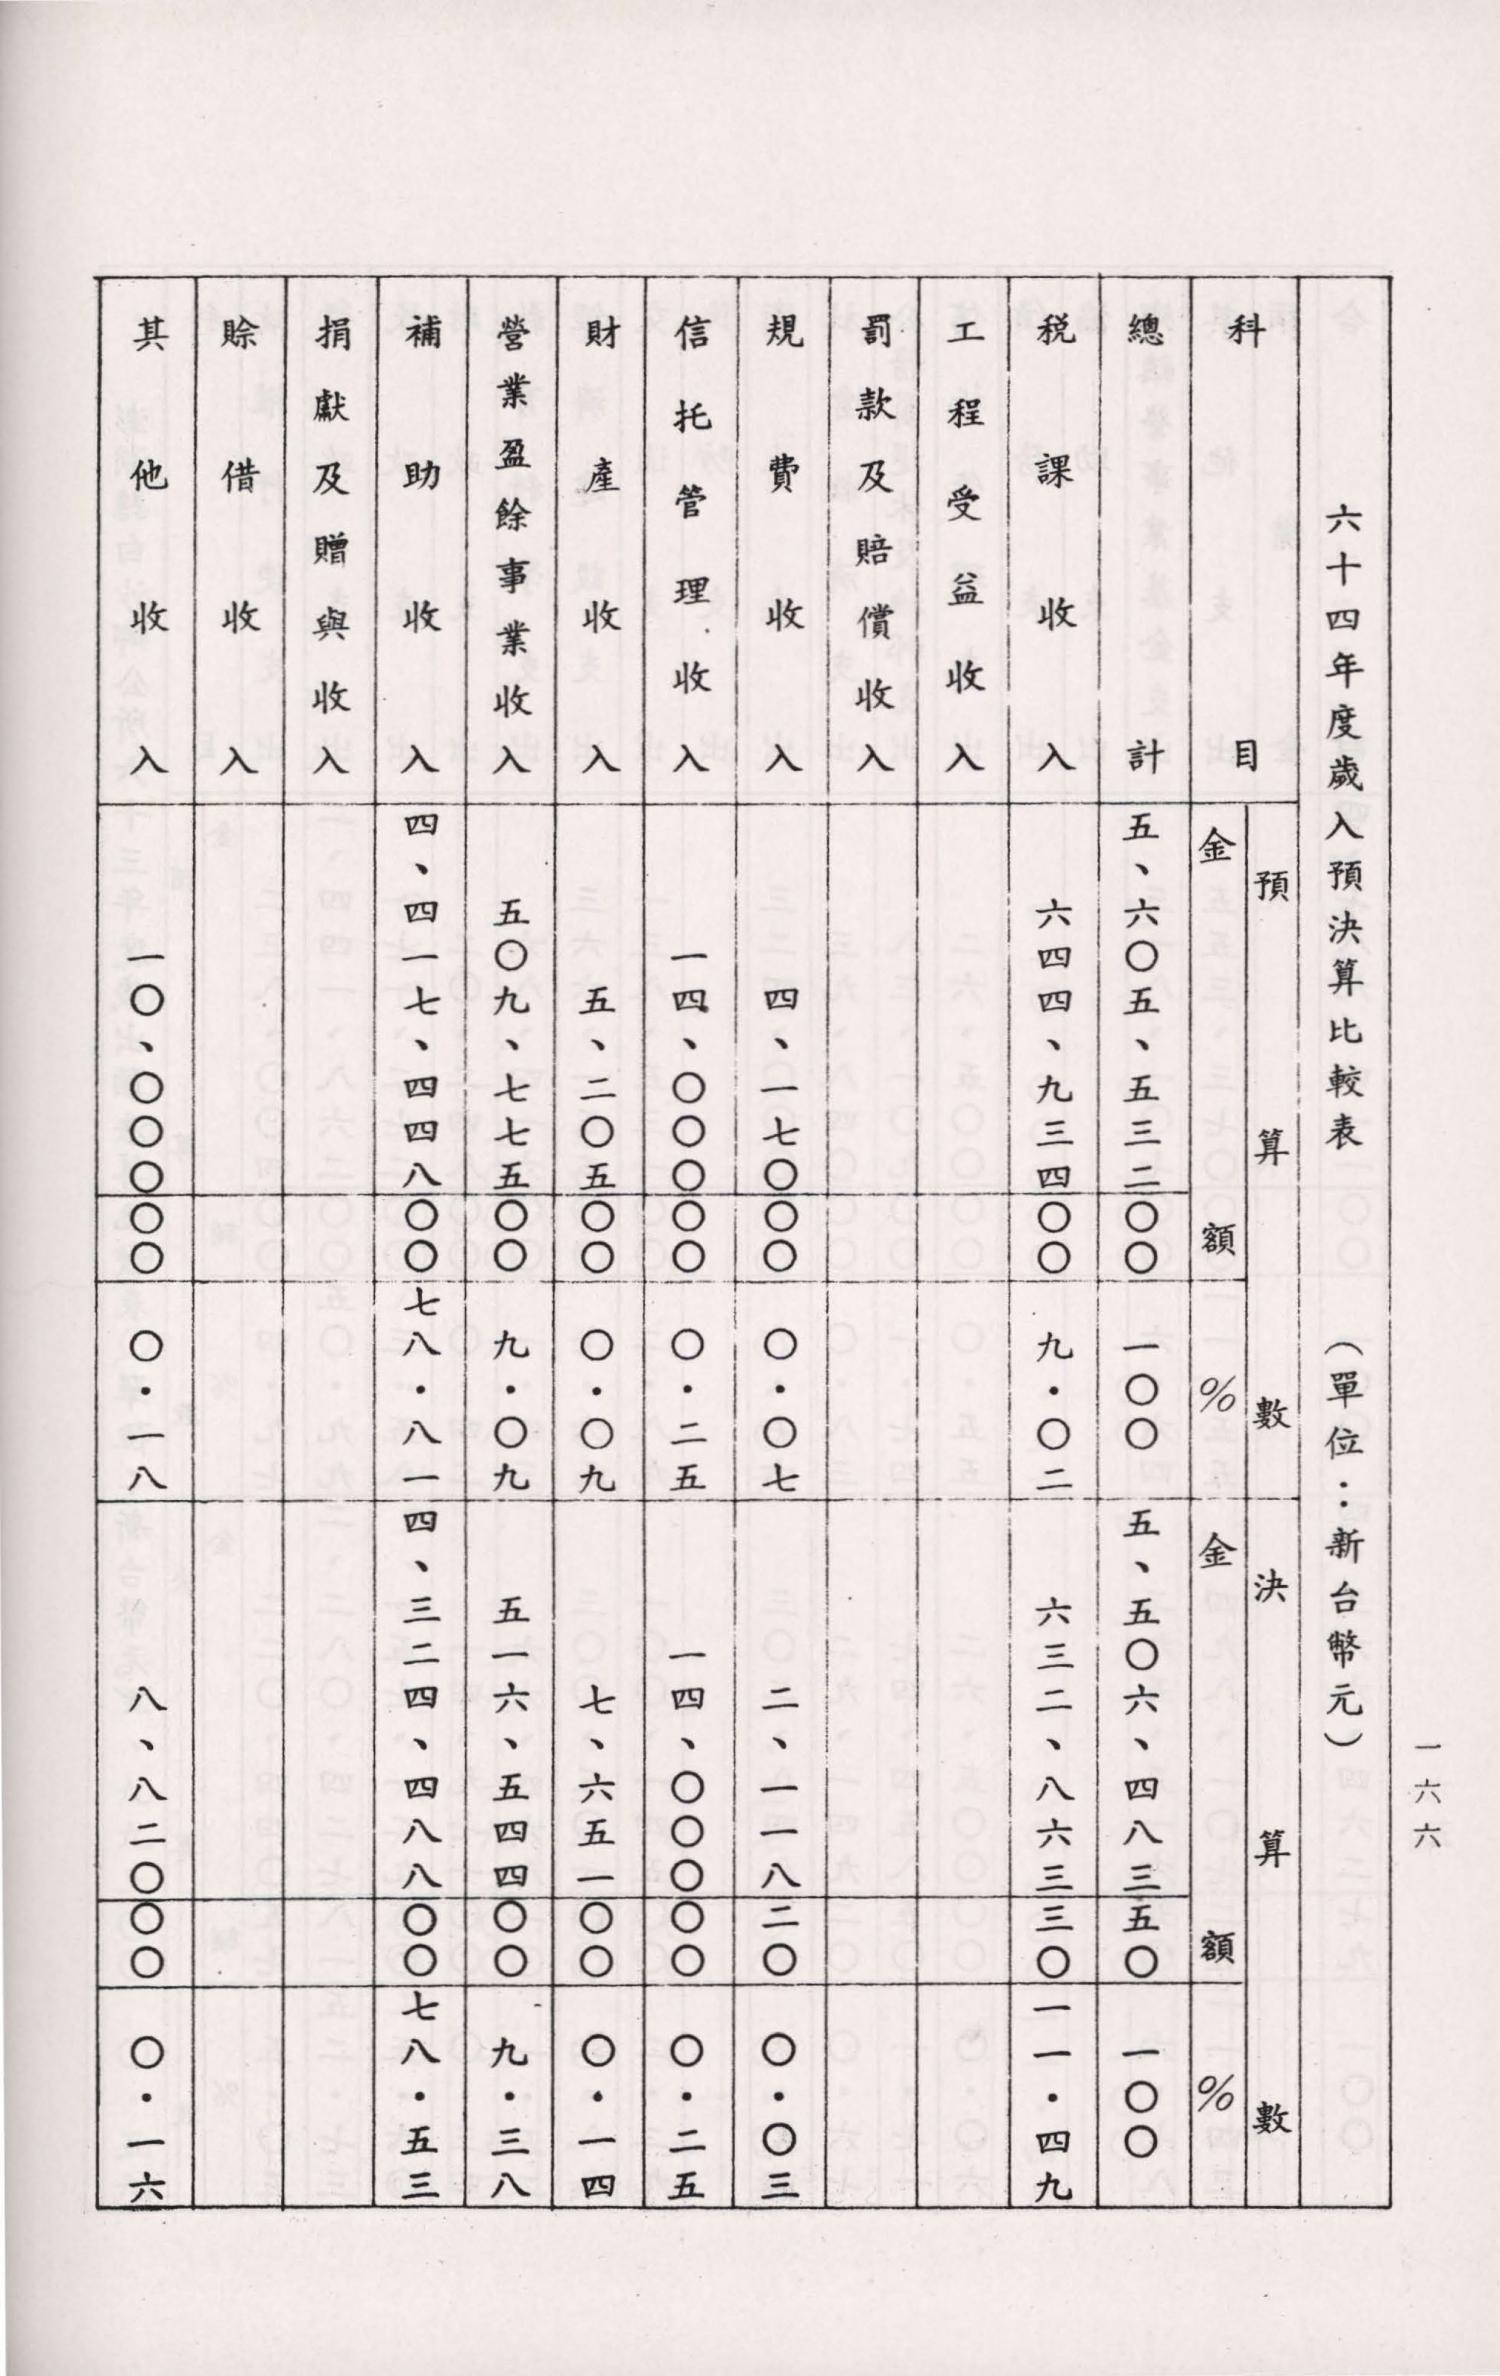 一六六
六十四年度歲入預決算比較表 （單位：新台幣元）
科目 預算數 金額 % 決算數 金額 %
總計 五、六〇五、五三二 〇〇 一〇〇 五、五〇六、四八三 五〇 一〇〇
税課收入 六四四、九三四 〇〇 九.〇二 六三二、八六三 三〇 一一.四九
工程受益收入
罰款及賠償收入
規費收入 四、一七〇 〇〇 〇.〇七 二、一一八 二〇 〇.〇三
信托管理收入 一四、〇〇〇 〇〇 〇.二五 一四、〇〇〇 〇〇 〇.二五
財產收入 五、二〇五 〇〇 〇.〇九 七、六五一 〇〇 〇.一四
營業盈餘事業收入 五〇九、七七五 〇〇 九.〇九 五一六、五四四 〇〇 九.三八
補助收入 四、四一七、四四八 〇〇 七八.八一 四、三二四、四八八 〇〇 七八.五三
捐獻及贈與收入
賒借收入
其他收入 一〇、〇〇〇 〇〇 〇.一八 八、八二〇 〇〇 〇.一六